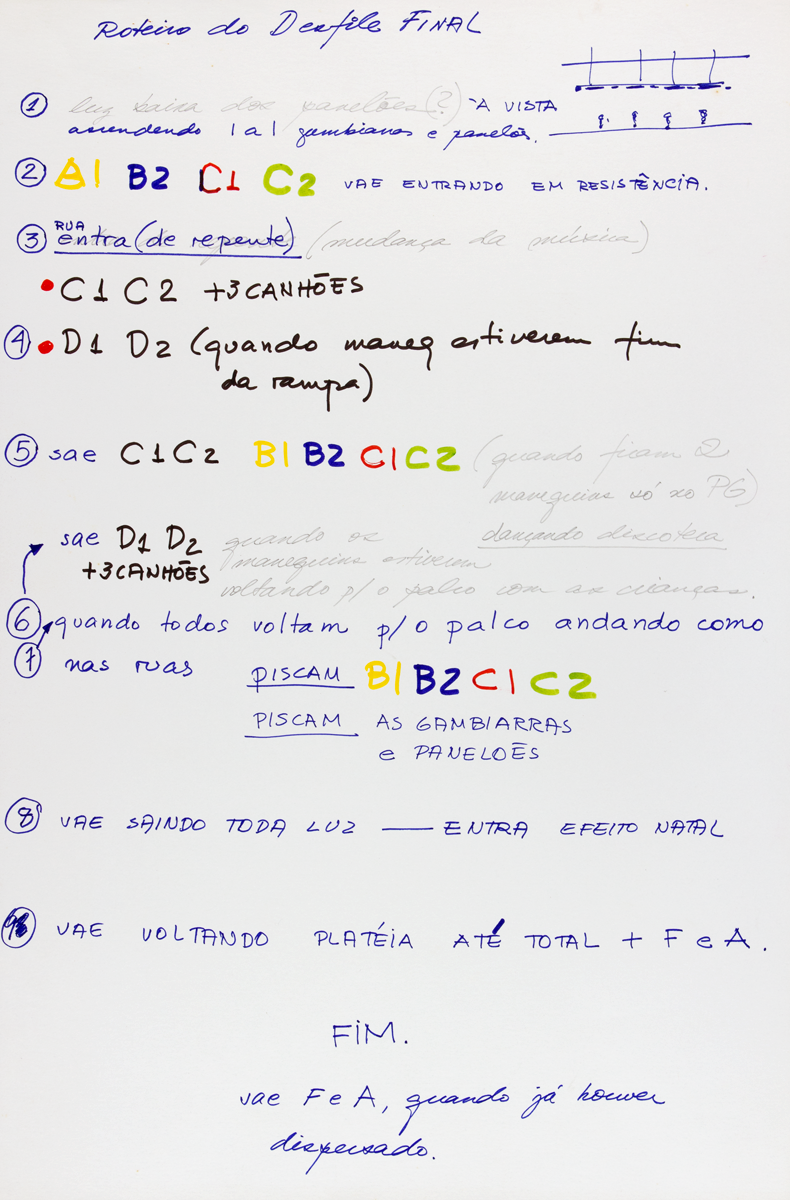 Roteiro do Desfile FINAL
① luz baixa dos panelões (?) À VISTA
acendendo 1 a 1 gambiarras e panelões.
② A1 B2 C1 C2 VAE ENTRANDO EM RESISTÊNCIA.
RUA
③ entra (de repente) (mudança da música)
• C1 C2 +3 CANHÕES
④ • D1 D2 (quando maneq estiverem fim
da rampa)
⑤ sae C1 C2 B1 B2 C1 C2 (quando ficam 2
manequins só no PG)
dançando discoteca
sae D1 D2 quando os
+3 CANHÕES manequins estiverem
voltando p/ o palco com as crianças.
⑥ quando todos voltam p/ o palco andando como
⑦ nas ruas PISCAM B1 B2 C1 C2
PISCAM AS GAMBIARRAS
e PANELOẼS
⑧ VAE SAINDO TODA LUZ — ENTRA EFEITO NATAL
VAE VOLTANDO PLATÉIA ATÉ TOTAL + F e A.
FIM.
vae F e A, quando já houver
dispersado.